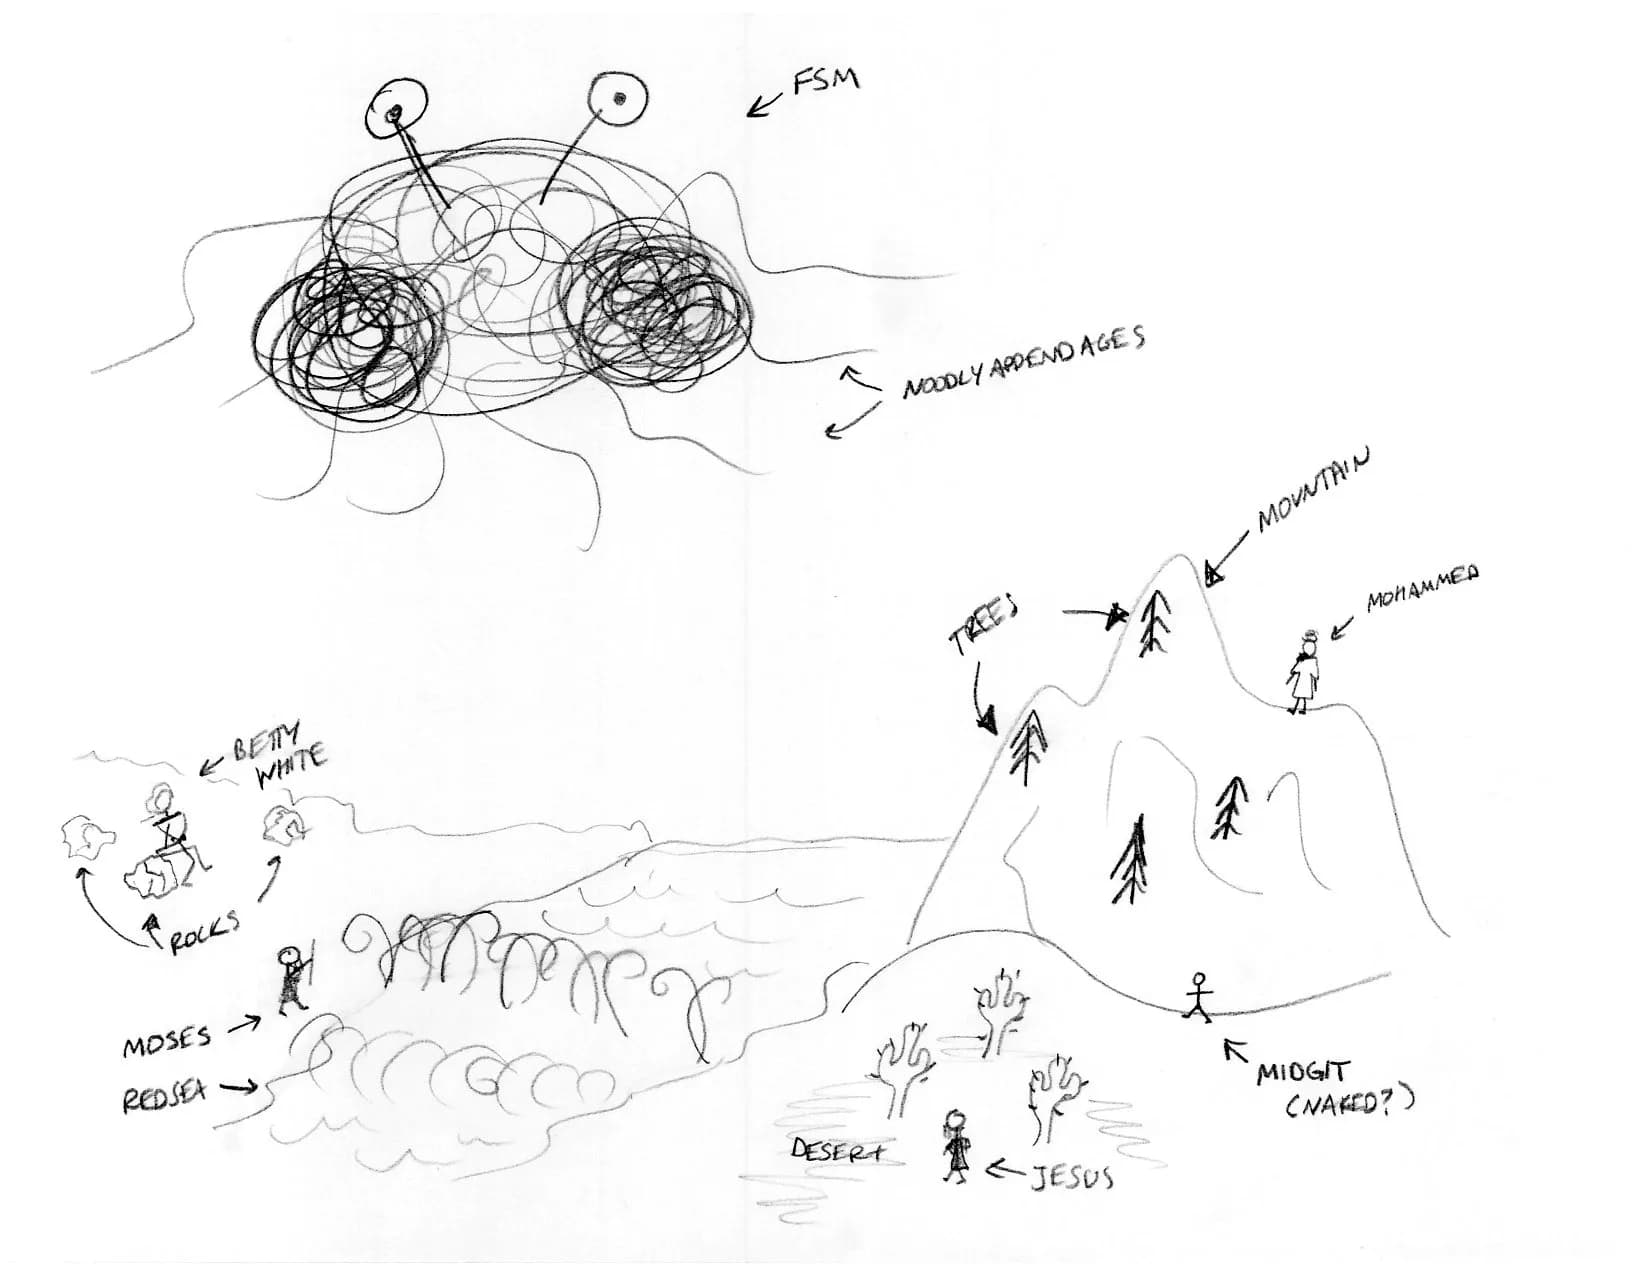 FSM
NOODLY APPENDAGES
MOUNTAIN
MOHAMMED
TREES
BETTY
WHITE
ROCKS
MOSES
REDSEA
MIDGIT
(NAKED?)
DESERT
JESUS